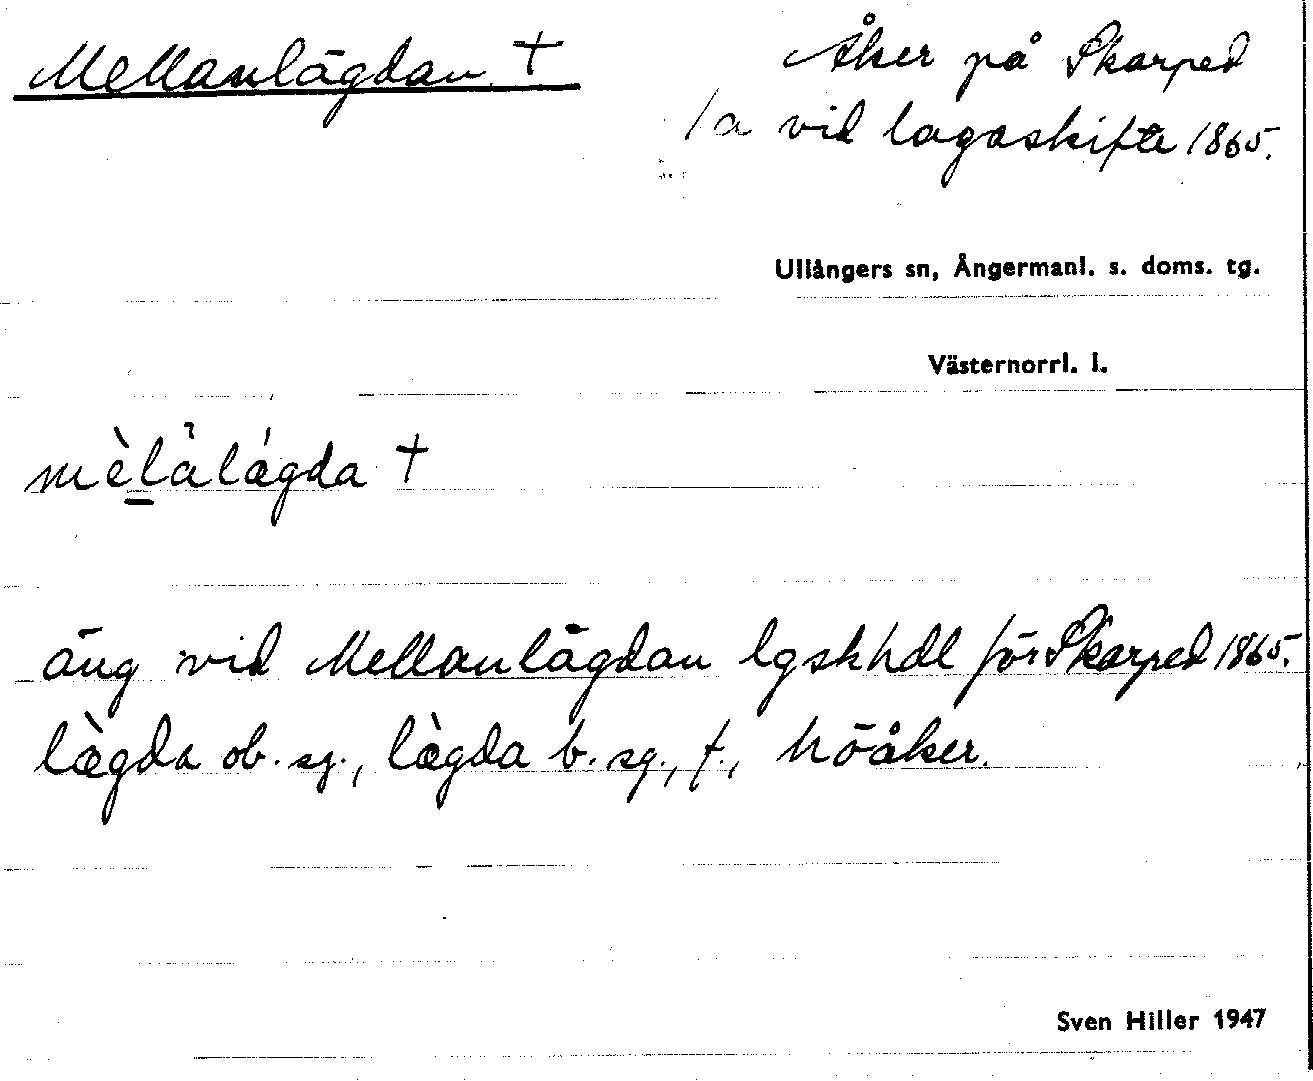 Mellanlägdan †
Åker på Skarped
1a vid lagaskifte 1865.
Ullångers sn, Ångermanl. s. doms. tg.
Västernorrl. l.
mèlàlágda †
äng vid Mellanlägdan lgskhdl för Skarped 1865.
lægda ob. sg., lægda b. sg., f., höåker.
Sven Hiller 1947